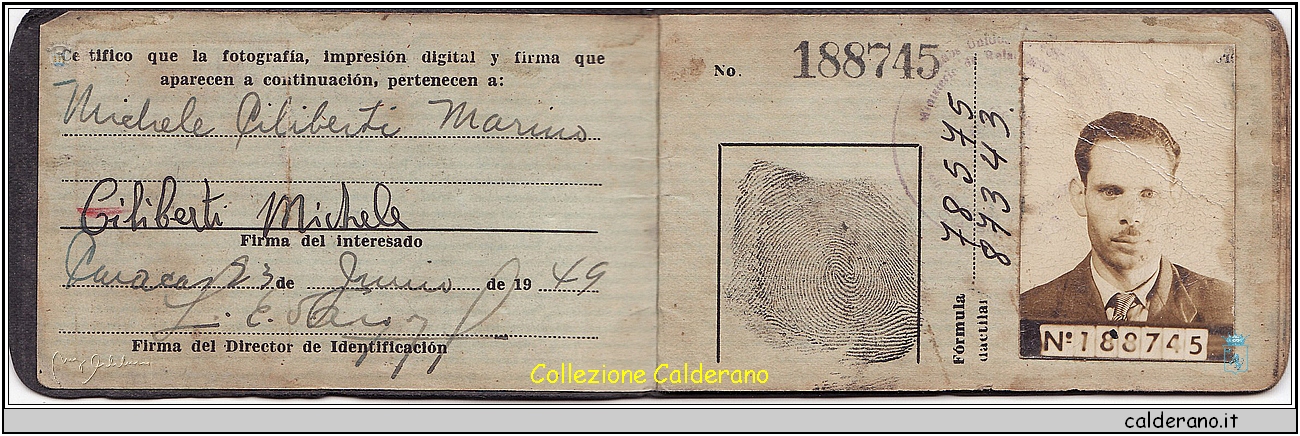 Certifico que la fotografía, impresión digital y firma que
aparecen a continuación, pertenecen a:
Michele Ciliberti Marino
Ciliberti Michele
Firma del interesado
Caracas 23 de Junio de 1949
Firma del Director de Identificación
No. 188745
78575
87343
Fórmula
dactilar
Nº 188745
Collezione Calderano
calderano.it